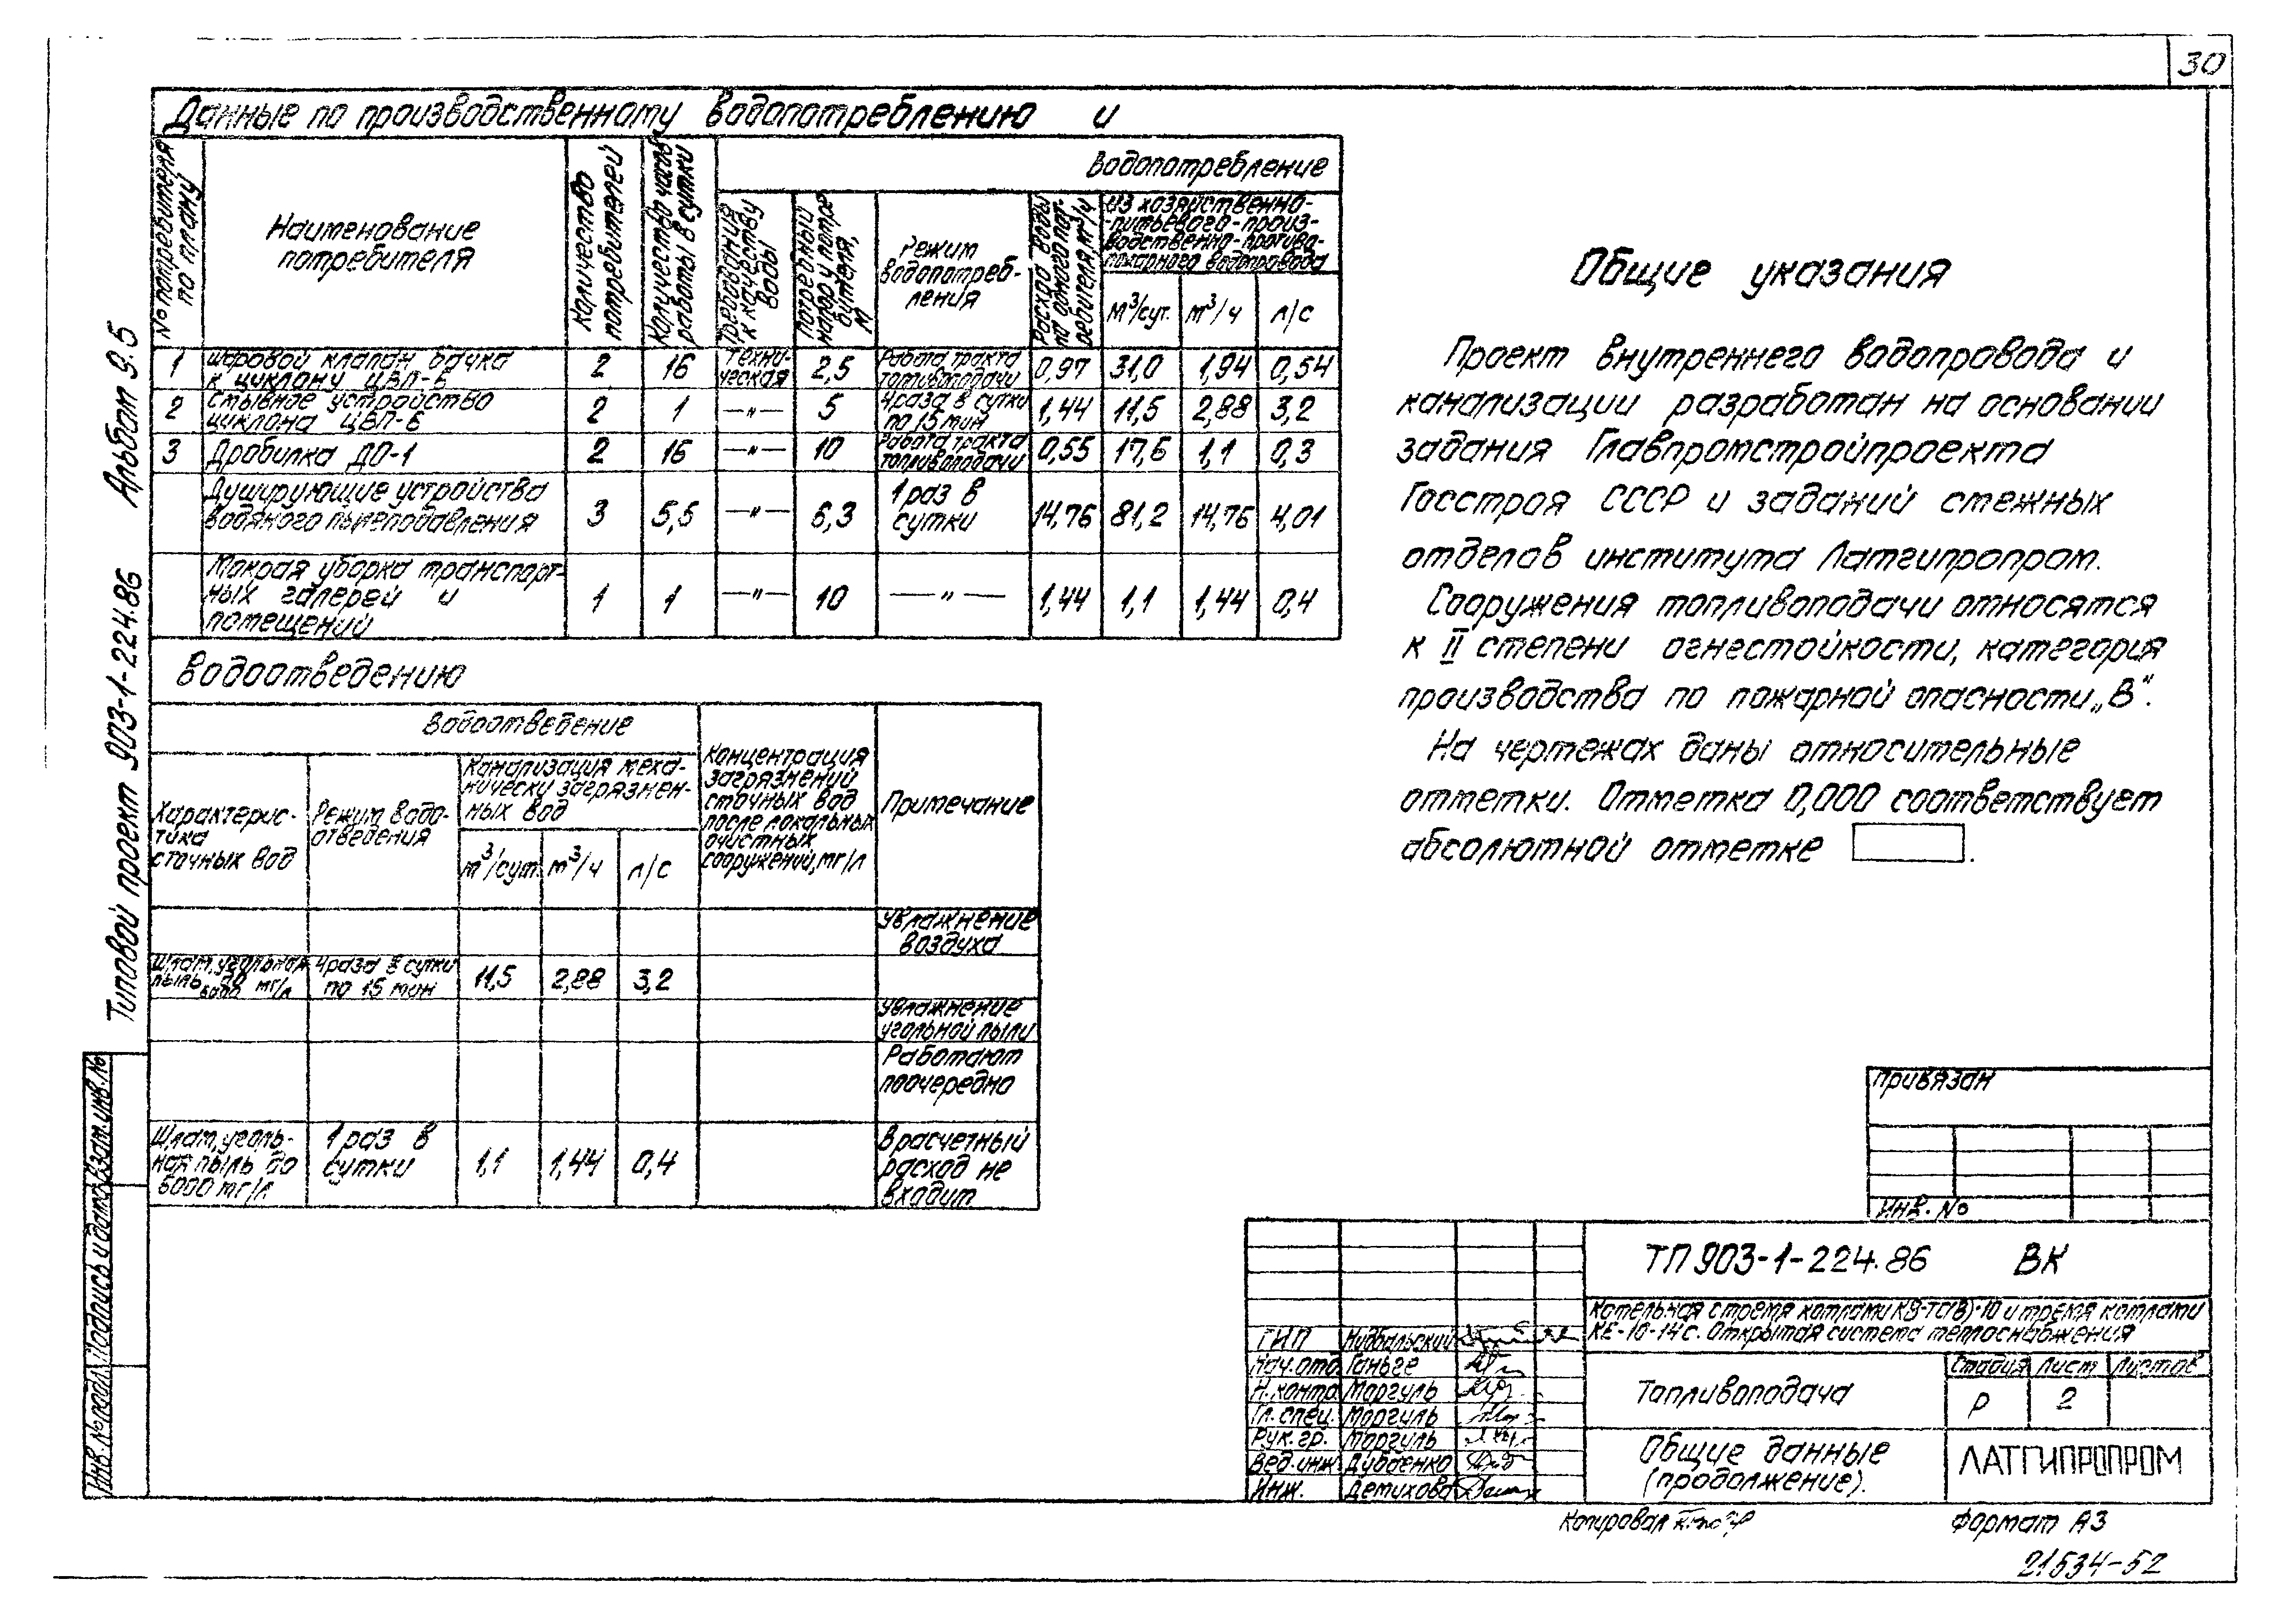 30
Данные по производственному водопотреблению и
№ потребителя по плану
Наименование
потребителя
Количество потребителей
Количество часов работы в сутки
Водопотребление
Требования к качеству воды
Потребный напор у потребителя, м
Режим
водопотреб-
ления
Расход воды на одного потребителя, м³/ч
Из хозяйственно-
-питьевого-произ-
водственно-противо-
пожарного водопровода
м³/сут. м³/ч л/с
1 Шаровой клапан бачка к циклону ЦВП-6 2 16 Техни-ческая 2,5 Работа тракта топливоподачи 0,97 31,0 1,94 0,54
2 Смывное устройство циклона ЦВП-6 2 1 —"— 5 4 раза в сутки по 15 мин 1,44 11,5 2,88 3,2
3 Дробилка ДО-1 2 16 —"— 10 Работа тракта топливоподачи 0,55 17,6 1,1 0,3
Душирующие устройства водяного пылеподавления 3 5,5 —"— 6,3 1 раз в сутки 14,76 81,2 14,76 4,01
Мокрая уборка транспорт-ных галерей и помещений 1 1 —"— 10 —"— 1,44 1,1 1,44 0,4
водоотведению
Водоотведение
Характерис-
тика
сточных вод
Режим водо-
отведения
Канализация меха-
нически загрязнен-
ных вод
м³/сут. м³/ч л/с
Концентрация
загрязнений
сточных вод
после локальных
очистных
сооружений, мг/л
Примечание
Увлажнение
воздуха
Шлам, угольная пыль до 6000 мг/л 4 раза в сутки по 15 мин 11,5 2,88 3,2
Увлажнение
угольной пыли
Работают
поочередно
Шлам, уголь-ная пыль до 6000 мг/л 1 раз в сутки 1,1 1,44 0,4 В расчетный расход не входит
Общие указания
Проект внутреннего водопровода и
канализации разработан на основании
задания Главпромстройпроекта
Госстроя СССР и заданий смежных
отделов института Латгипропром.
Сооружения топливоподачи относятся
к II степени огнестойкости, категория
производства по пожарной опасности „В".
На чертежах даны относительные
отметки. Отметка 0,000 соответствует
абсолютной отметке .
Типовой проект 903-1-224.86 Альбом 9.5
Инв. № подл. Подпись и дата Взам. инв. №
Привязан
Инв. №
ТП 903-1-224.86 ВК
Котельная с тремя котлами КВ-ТС(В)-10 и тремя котлами
КЕ-10-14с. Открытая система теплоснабжения
ГИП
Нач. отд. Ганьге
Н. контр. Моргуль
Гл. спец. Моргуль
Рук. гр. Моргуль
Вед. инж. Дубденко
Инж. Демихова
Топливоподача
Стадия Лист Листов
Р 2
Общие данные
(продолжение).
ЛАТГИПРОПРОМ
Копировал
Формат А3
21534-52